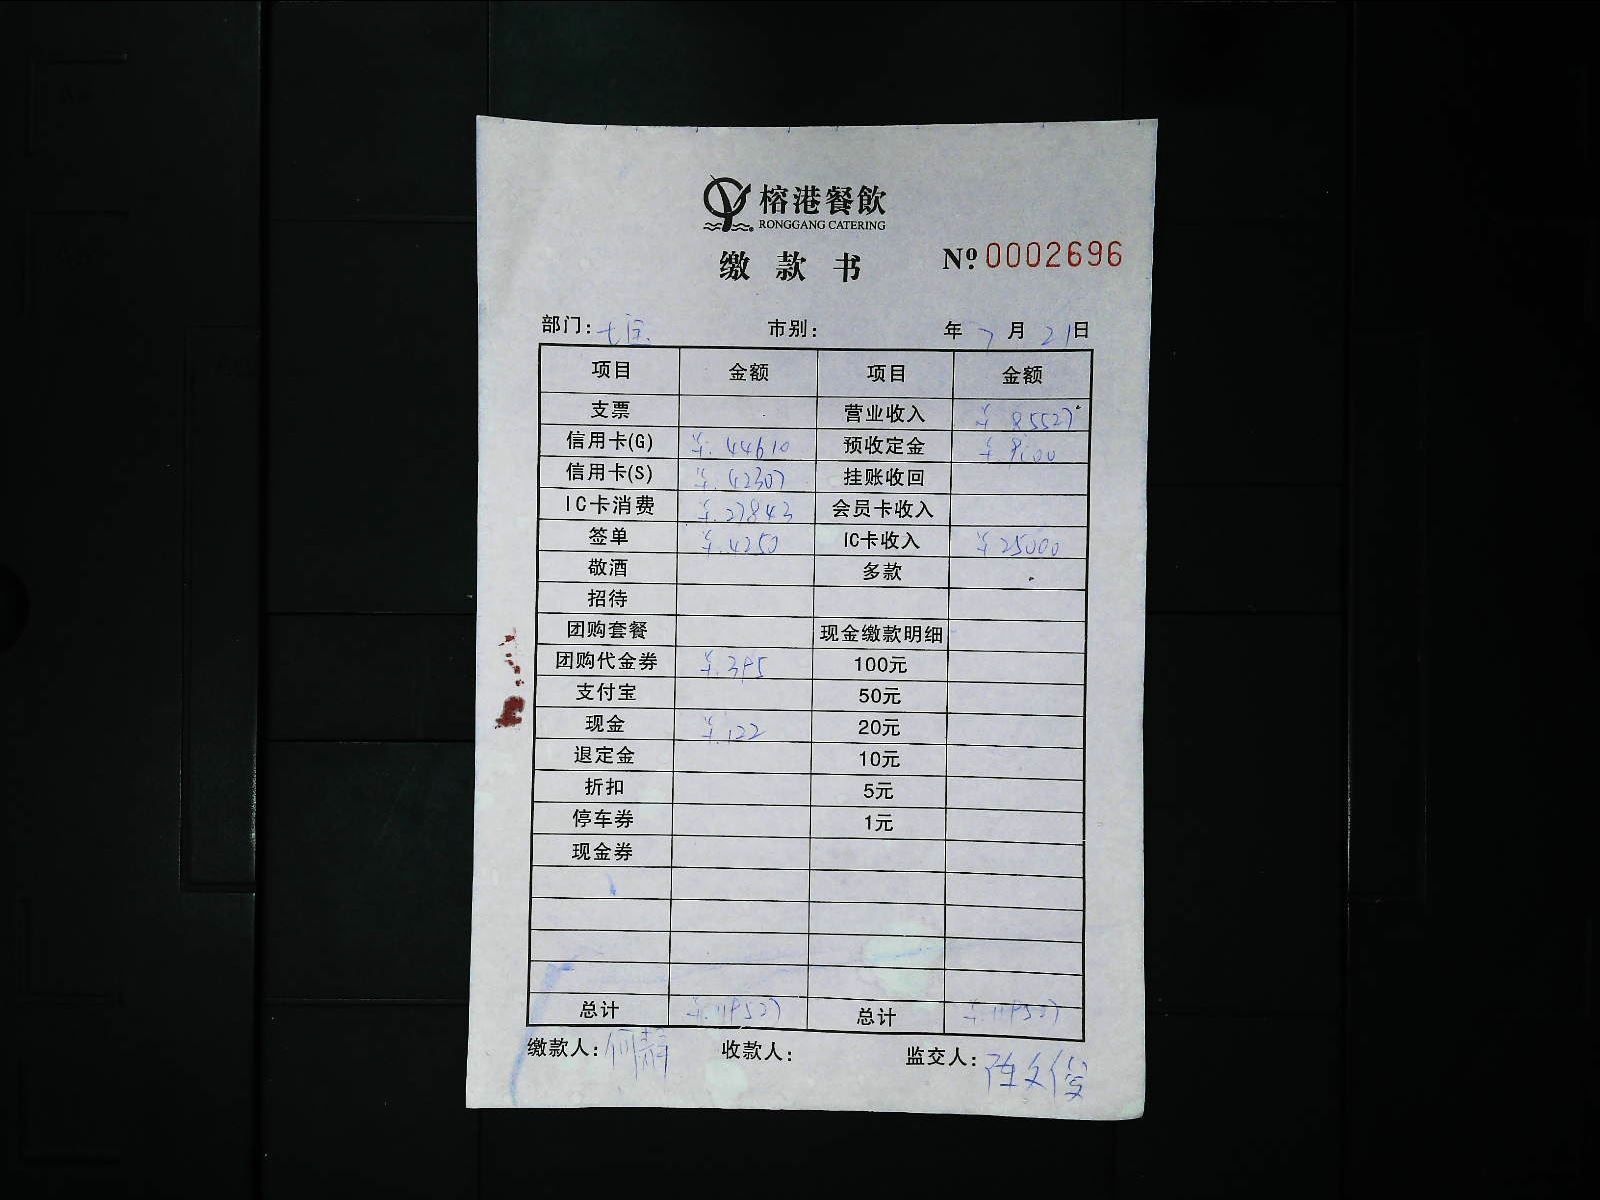 榕港餐飲
RONGGANG CATERING
缴款书 № 0002696
部门: 市别: 年 7 月 21 日
项目 金额 项目 金额
支票 营业收入 ¥ 85527
信用卡(G) ¥. 44610 预收定金 ¥ 9000
信用卡(S) ¥. 42307 挂账收回
IC卡消费 ¥. 27843 会员卡收入
签单 ¥. 4250 IC卡收入 ¥ 25000
敬酒 多款
招待
团购套餐 现金缴款明细
团购代金券 ¥. 395 100元
支付宝 50元
现金 ¥. 122 20元
退定金 10元
折扣 5元
停车券 1元
现金券
总计 ¥. 119527 总计 ¥. 119527
缴款人: 何靜 收款人: 监交人: 陈文俊